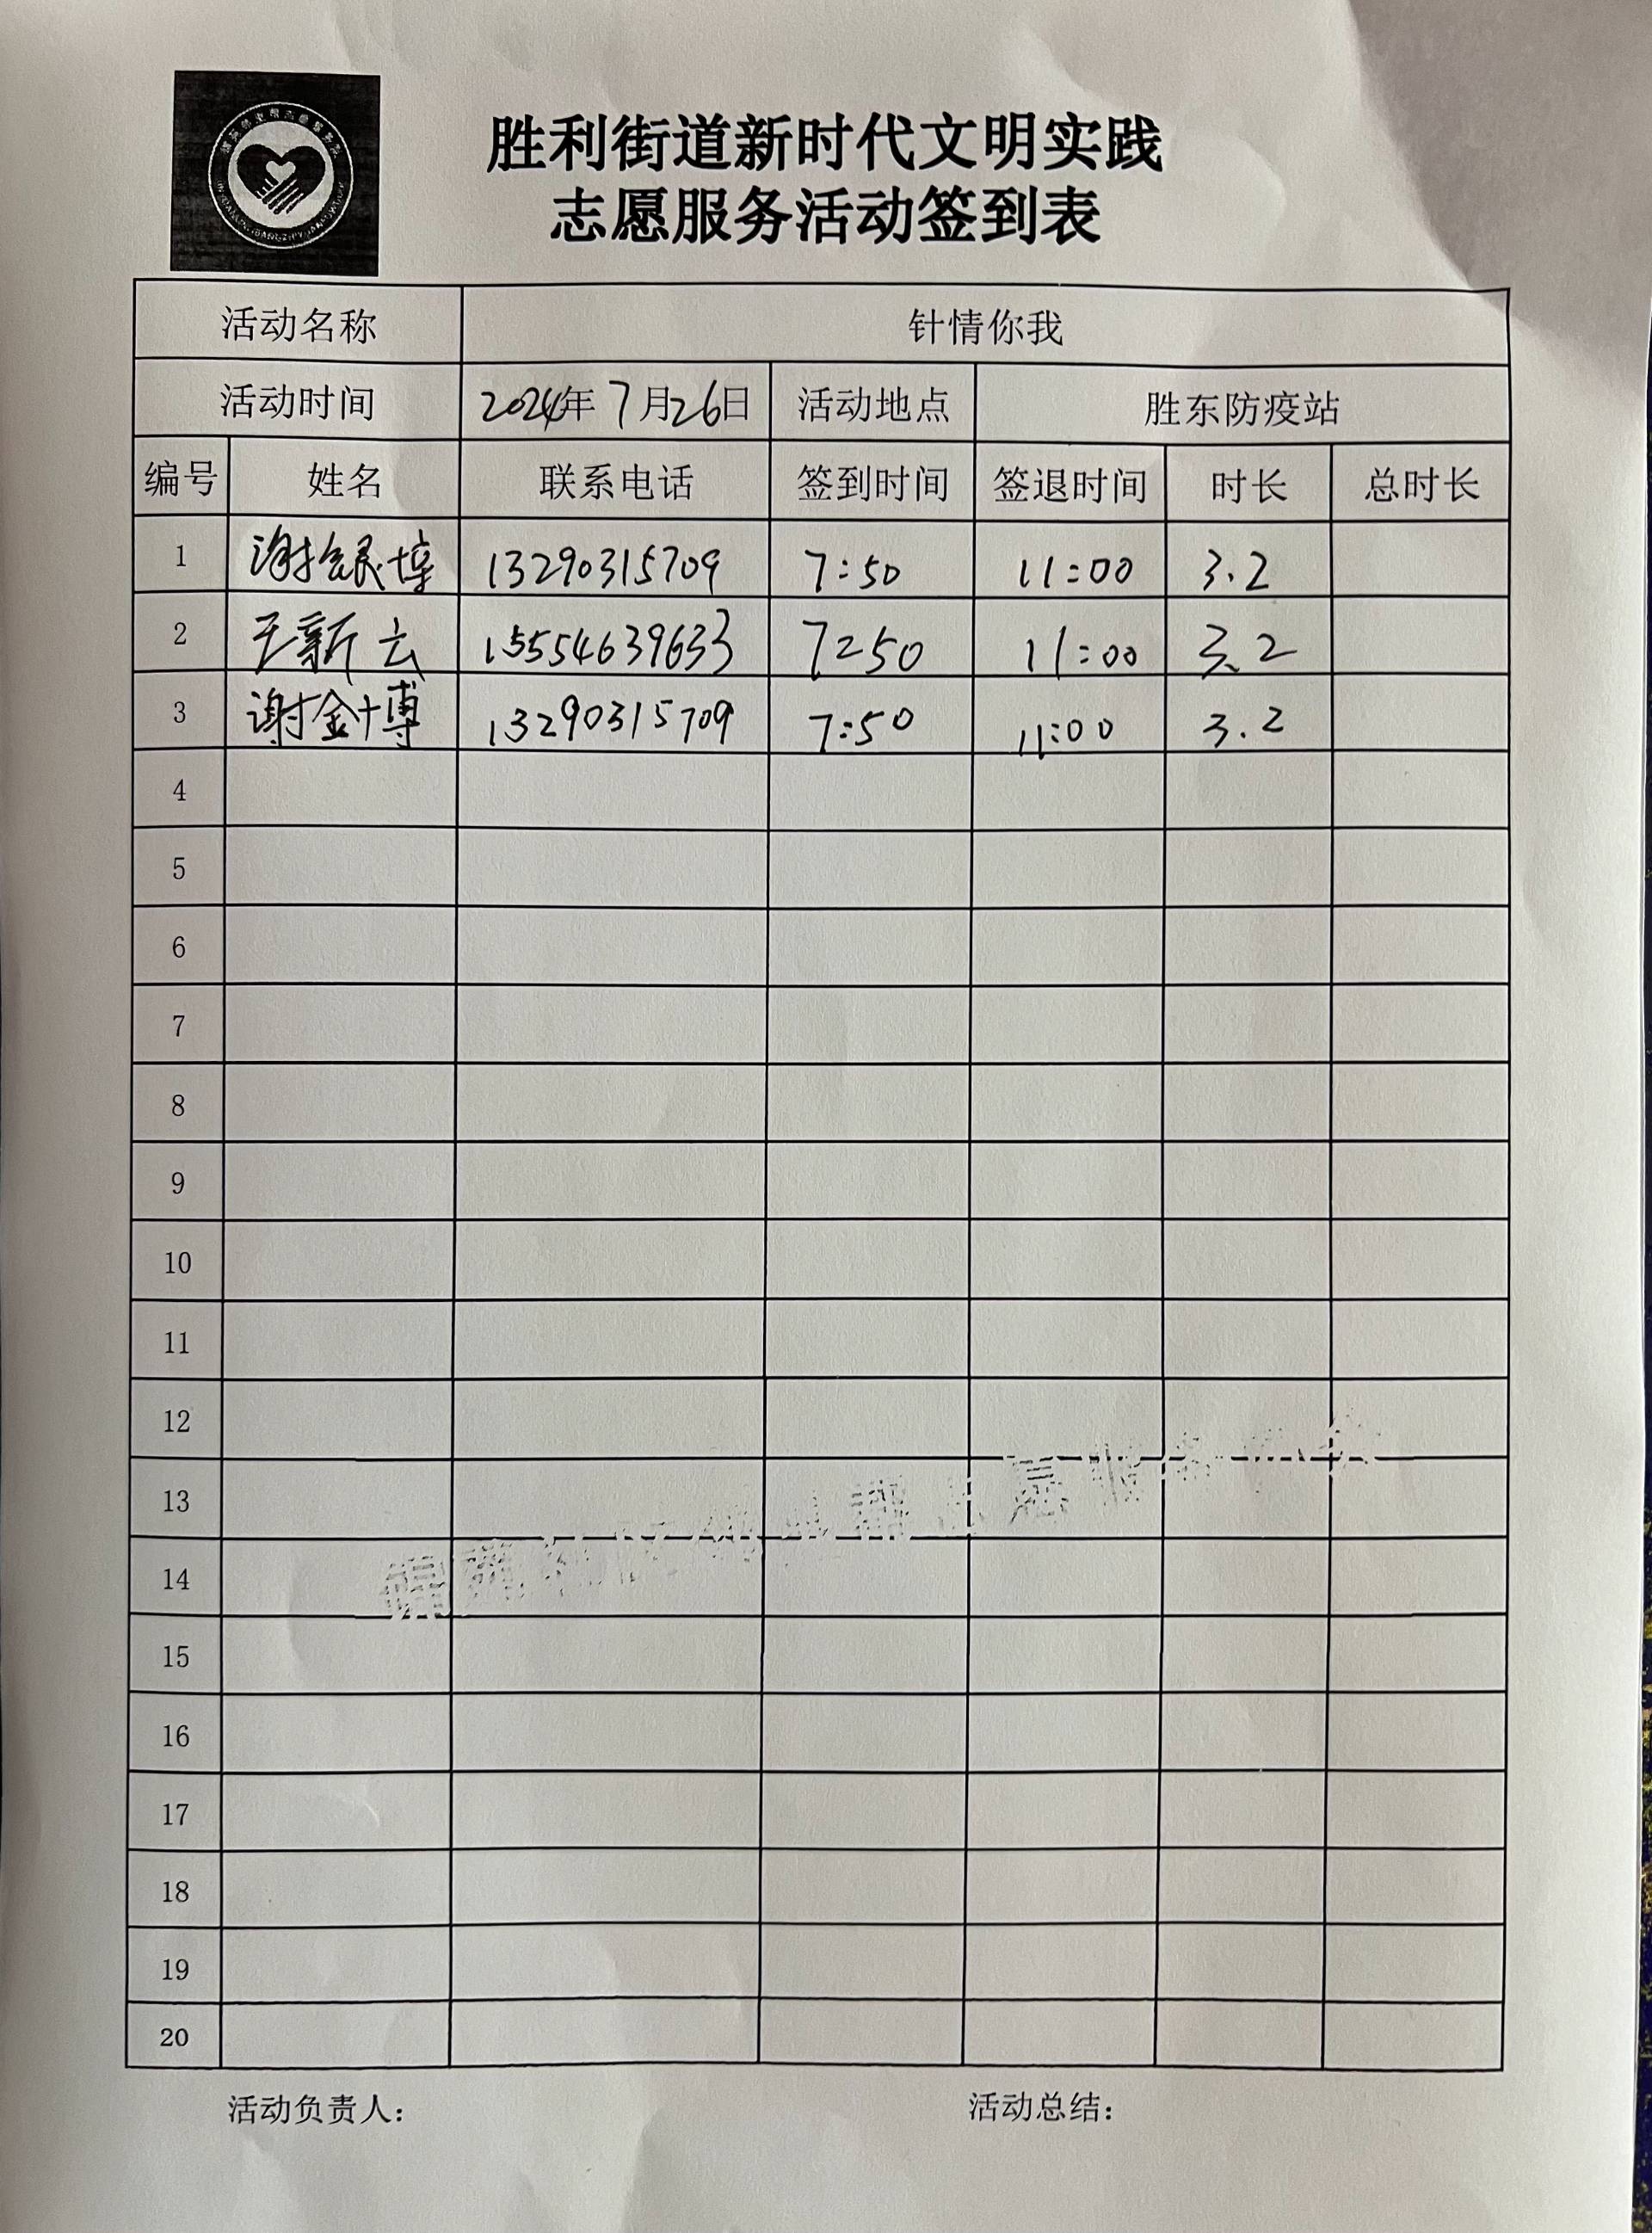 胜利街道新时代文明实践
志愿服务活动签到表
活动名称 针情你我
活动时间 2024年7月26日 活动地点 胜东防疫站
编号 姓名 联系电话 签到时间 签退时间 时长 总时长
1 谢银博 13290315709 7:50 11:00 3.2
2 王新云 15554639633 7:50 11:00 3.2
3 谢金博 13290315709 7:50 11:00 3.2
4
5
6
7
8
9
10
11
12
13
14
15
16
17
18
19
20
活动负责人： 活动总结：